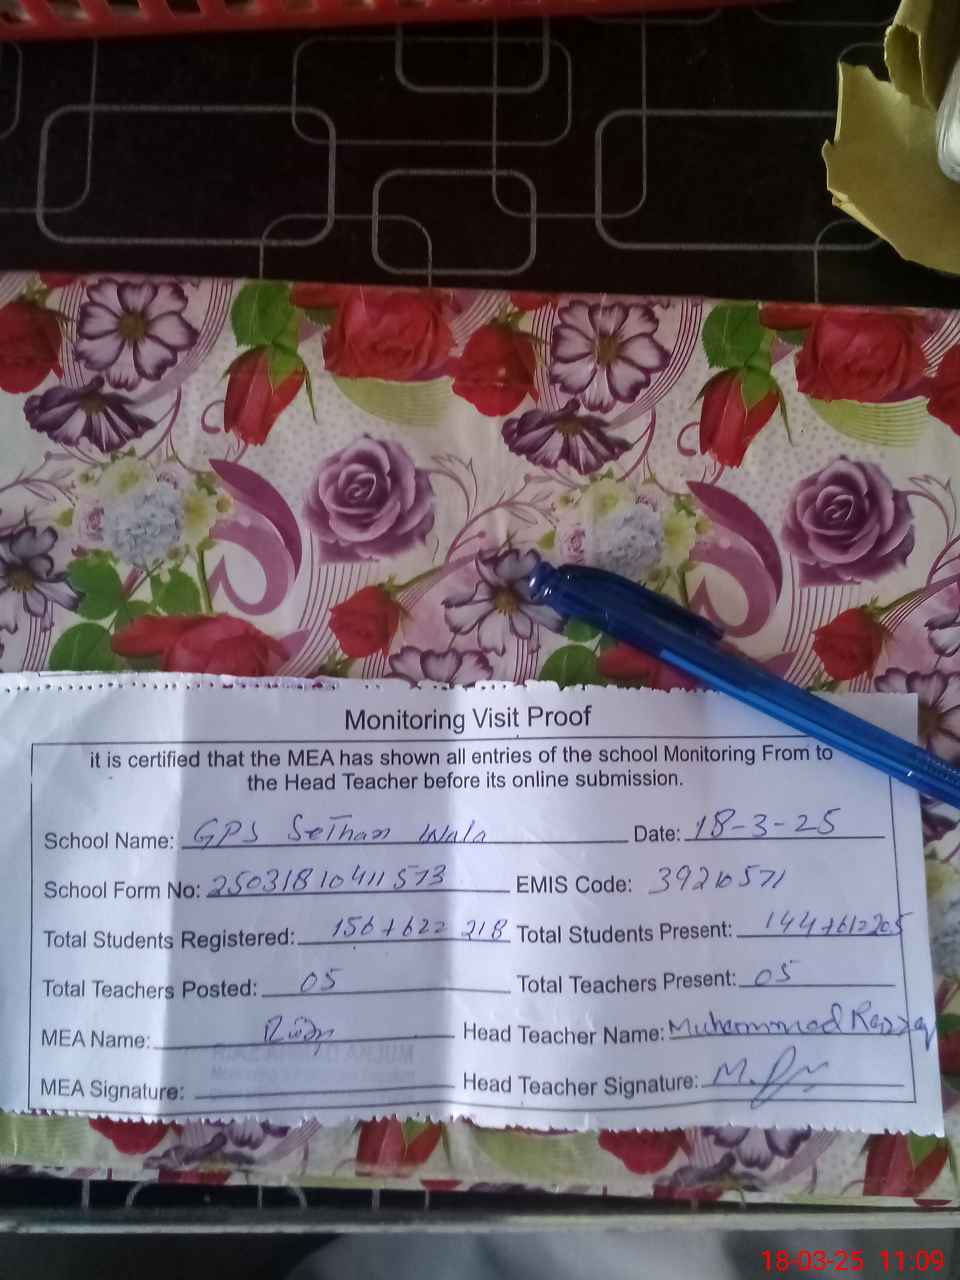 Monitoring Visit Proof
it is certified that the MEA has shown all entries of the school Monitoring From to
the Head Teacher before its online submission.
School Name: GPS Sethan Wala Date: 18-3-25
School Form No: 25031810411573 EMIS Code: 39210571
Total Students Registered: 156+622 218 Total Students Present: 144+612205
Total Teachers Posted: 05 Total Teachers Present: 05
MEA Name: Head Teacher Name: Muhammad Razzaq
MEA Signature: Head Teacher Signature:
18-03-25 11:09